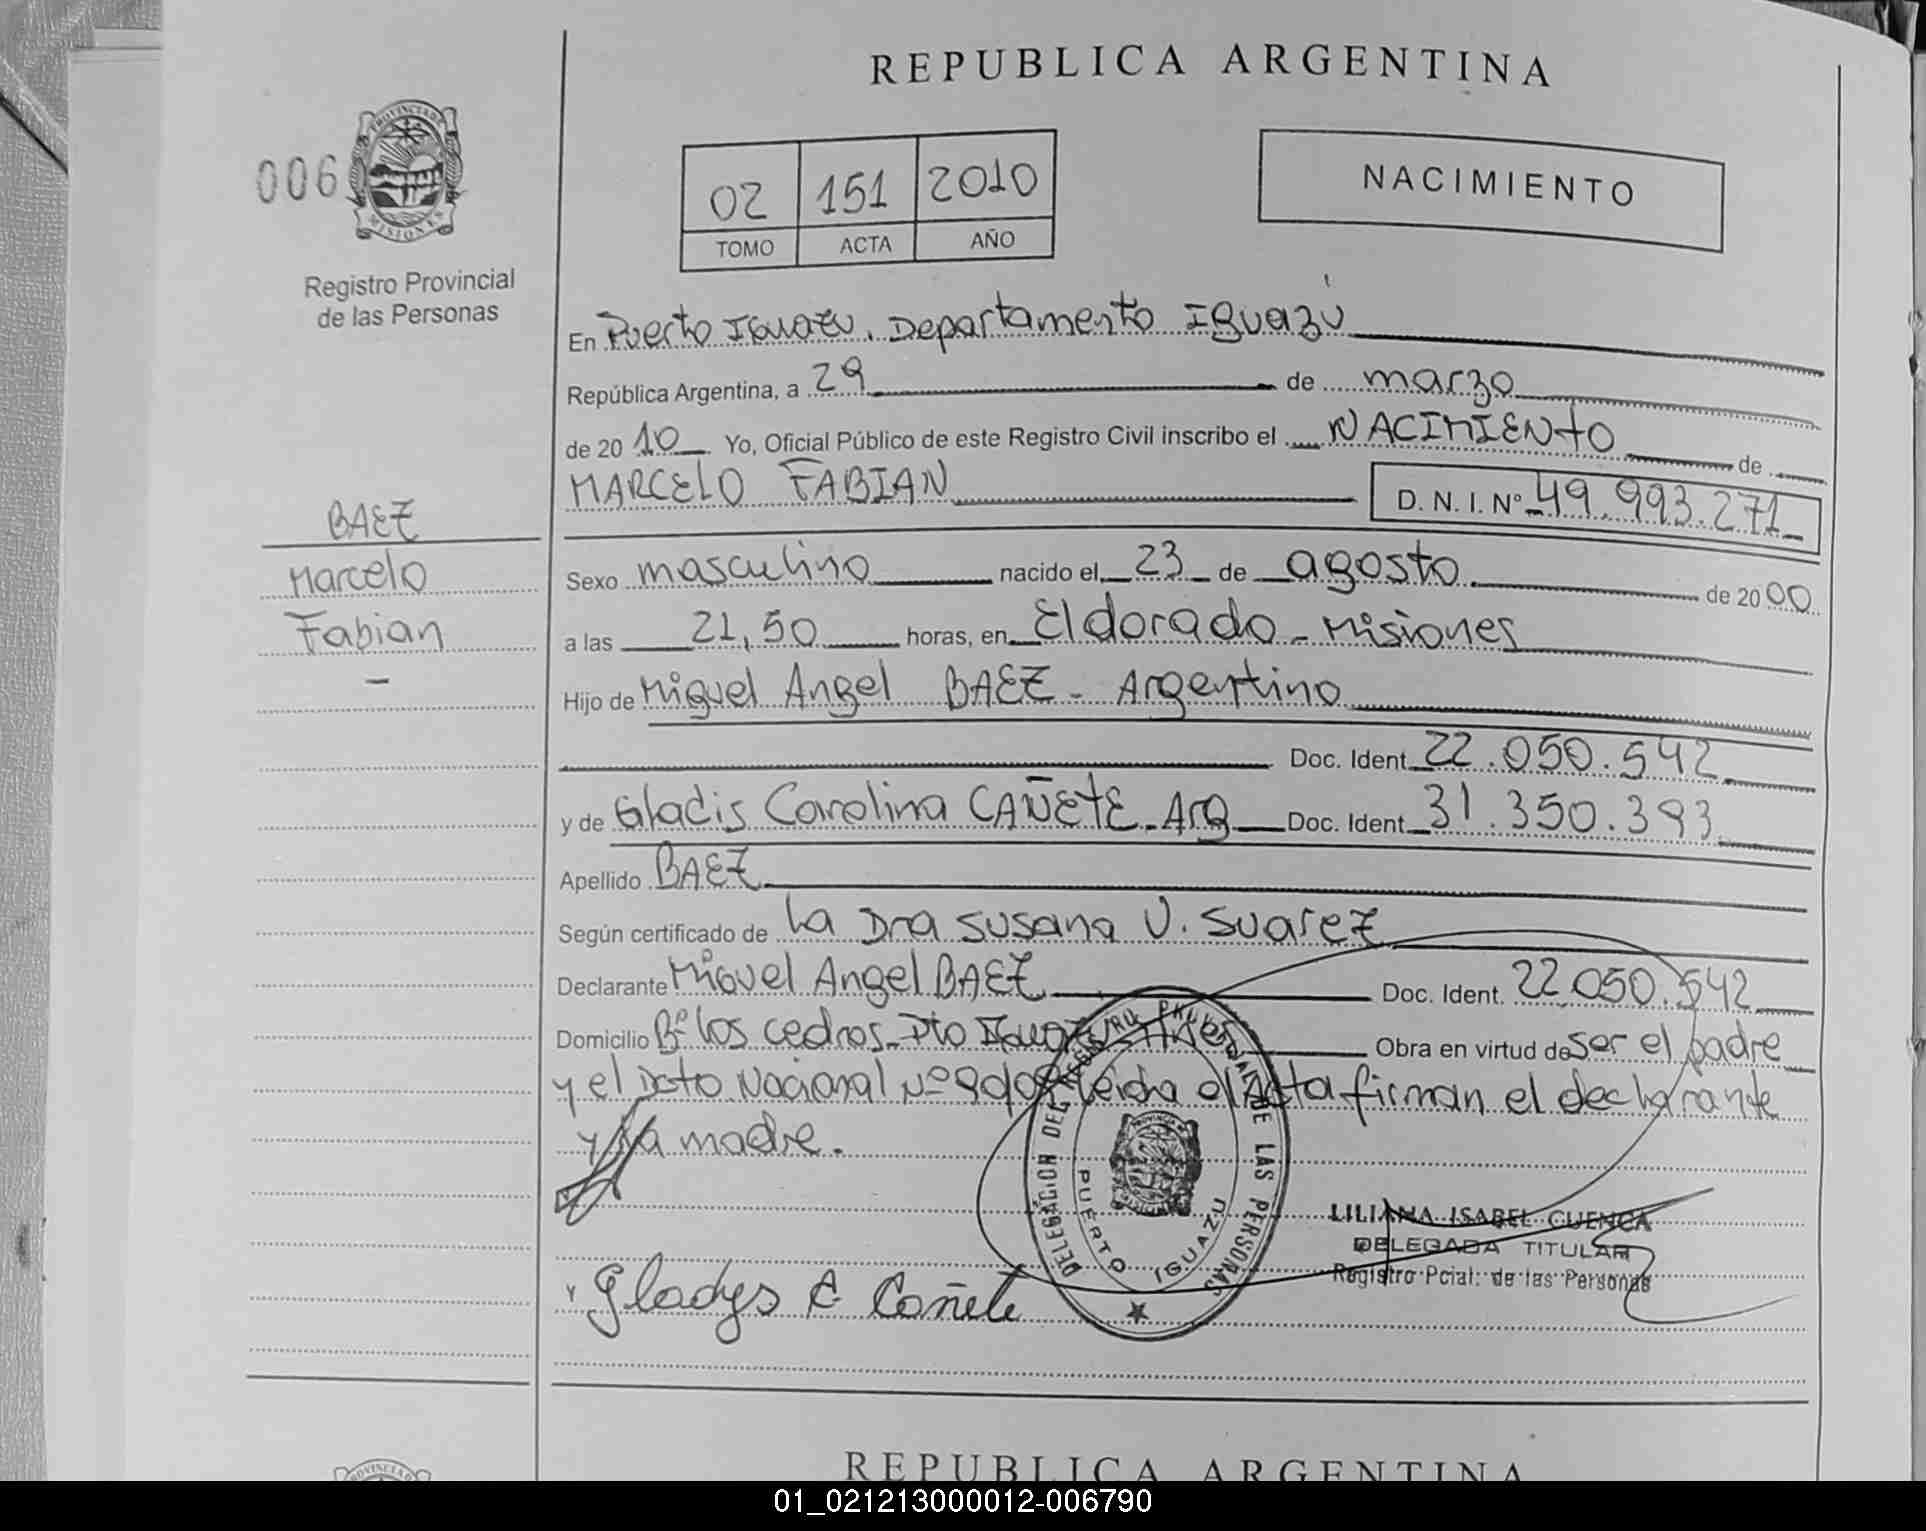 REPUBLICA ARGENTINA
006
PROVINCIA DE
MISIONES
Registro Provincial
de las Personas
02 151 2010
TOMO ACTA AÑO
NACIMIENTO
En Puerto Iguazu, Departamento Iguazú
República Argentina, a 29 de marzo
de 2010 Yo, Oficial Público de este Registro Civil inscribo el NACIMIENTO de
MARCELO FABIAN D. N. I. Nº 49.993.271
BAEZ
Marcelo
Fabian
Sexo masculino nacido el 23 de agosto de 2000
a las 21,50 horas, en Eldorado - Misiones
Hijo de Miguel Angel BAEZ - Argentino
Doc. Ident. 22.050.542
y de Gladis Carolina CAÑETE - Arg Doc. Ident. 31.350.393
Apellido BAEZ
Según certificado de La Dra Susana V. Suarez
Declarante Miguel Angel BAEZ Doc. Ident. 22.050.542
Domicilio Bº los cedros - Pto Iguazu Obra en virtud de ser el padre
y el Dcto Nacional Nº leida el Acta firman el declarante
y la madre.
DELEGACION DEL REGISTRO PROVINCIAL DE LAS PERSONAS
PUERTO IGUAZU
LILIANA ISABEL CUENCA
DELEGADA TITULAR
Registro Pcial. de las Personas
Gladys C Cañete
REPUBLICA ARGENTINA
01_021213000012-006790